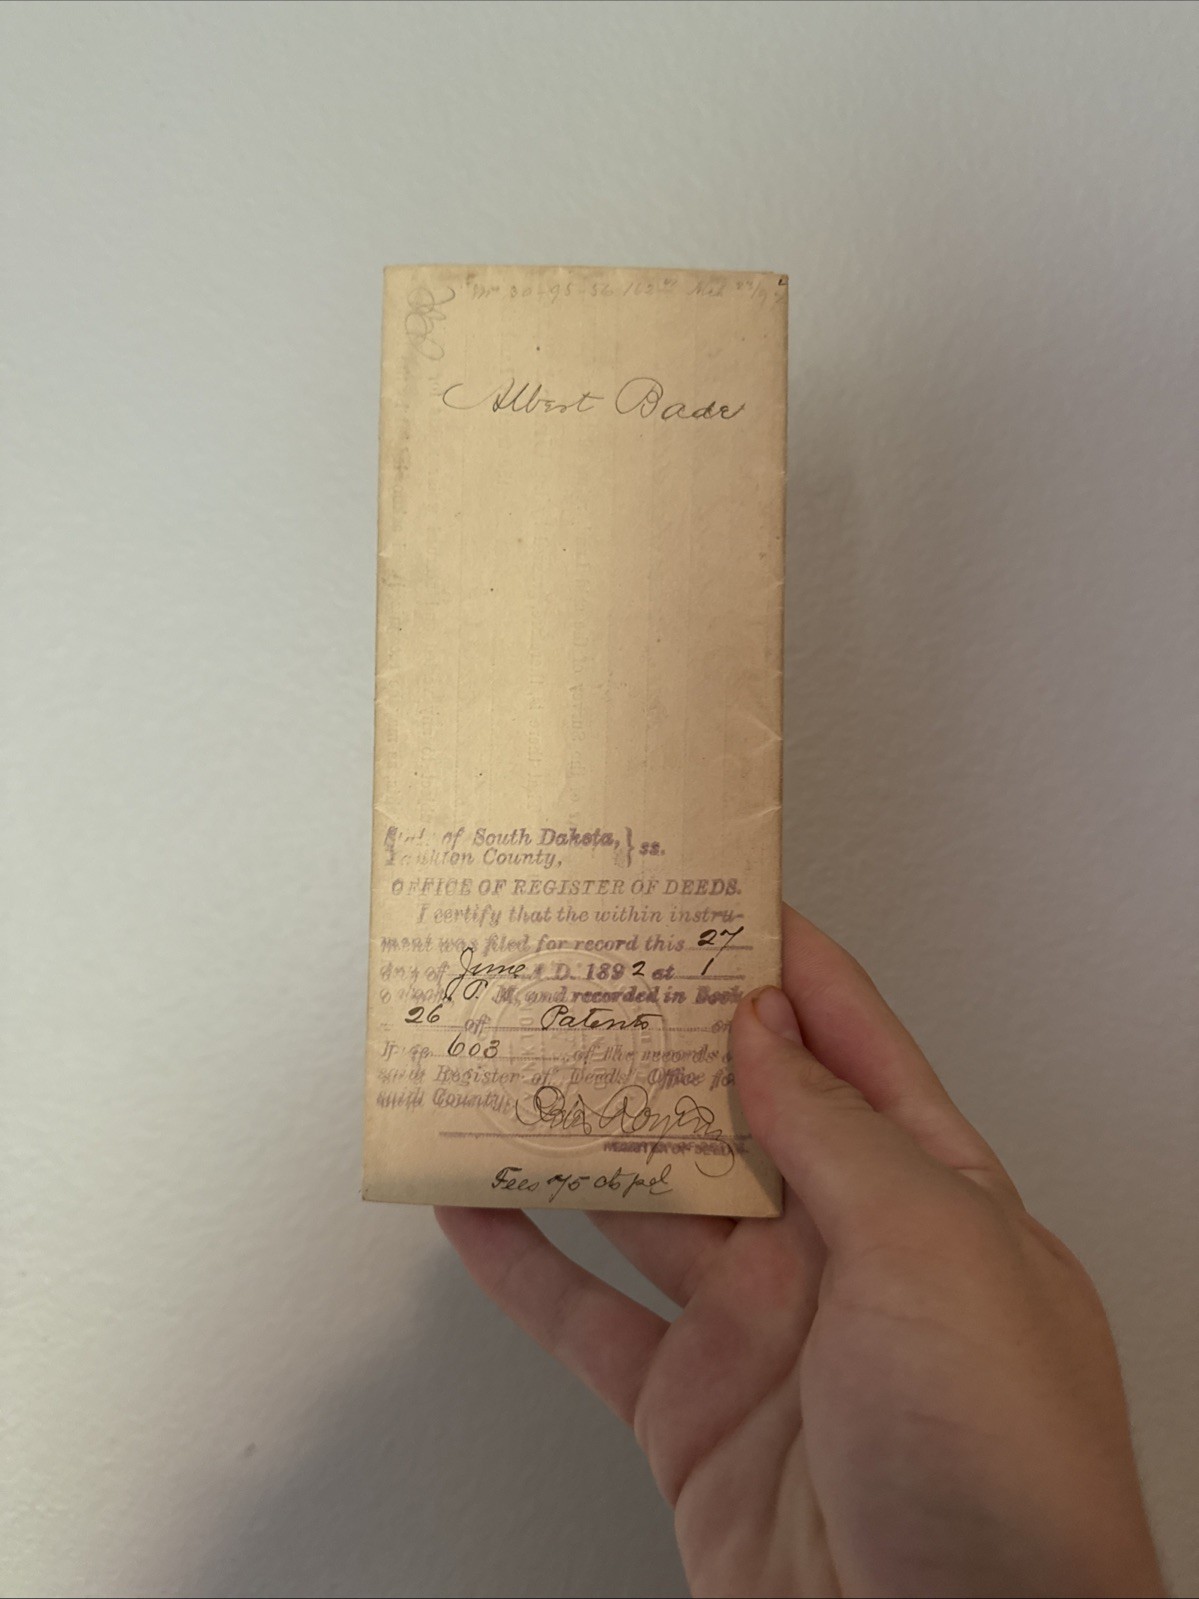 30-95-56
Albert Bade
State of South Dakota, } ss.
Yankton County,
OFFICE OF REGISTER OF DEEDS.
I certify that the within instru-
ment was filed for record this 27
day of June A. D. 1892 at 1
o'clock P. M., and recorded in Book
26 of Patents on
Page 603 of the records of
said Register of Deeds' Office for
said County.
REGISTER OF DEEDS.
Fees 75 cts pd